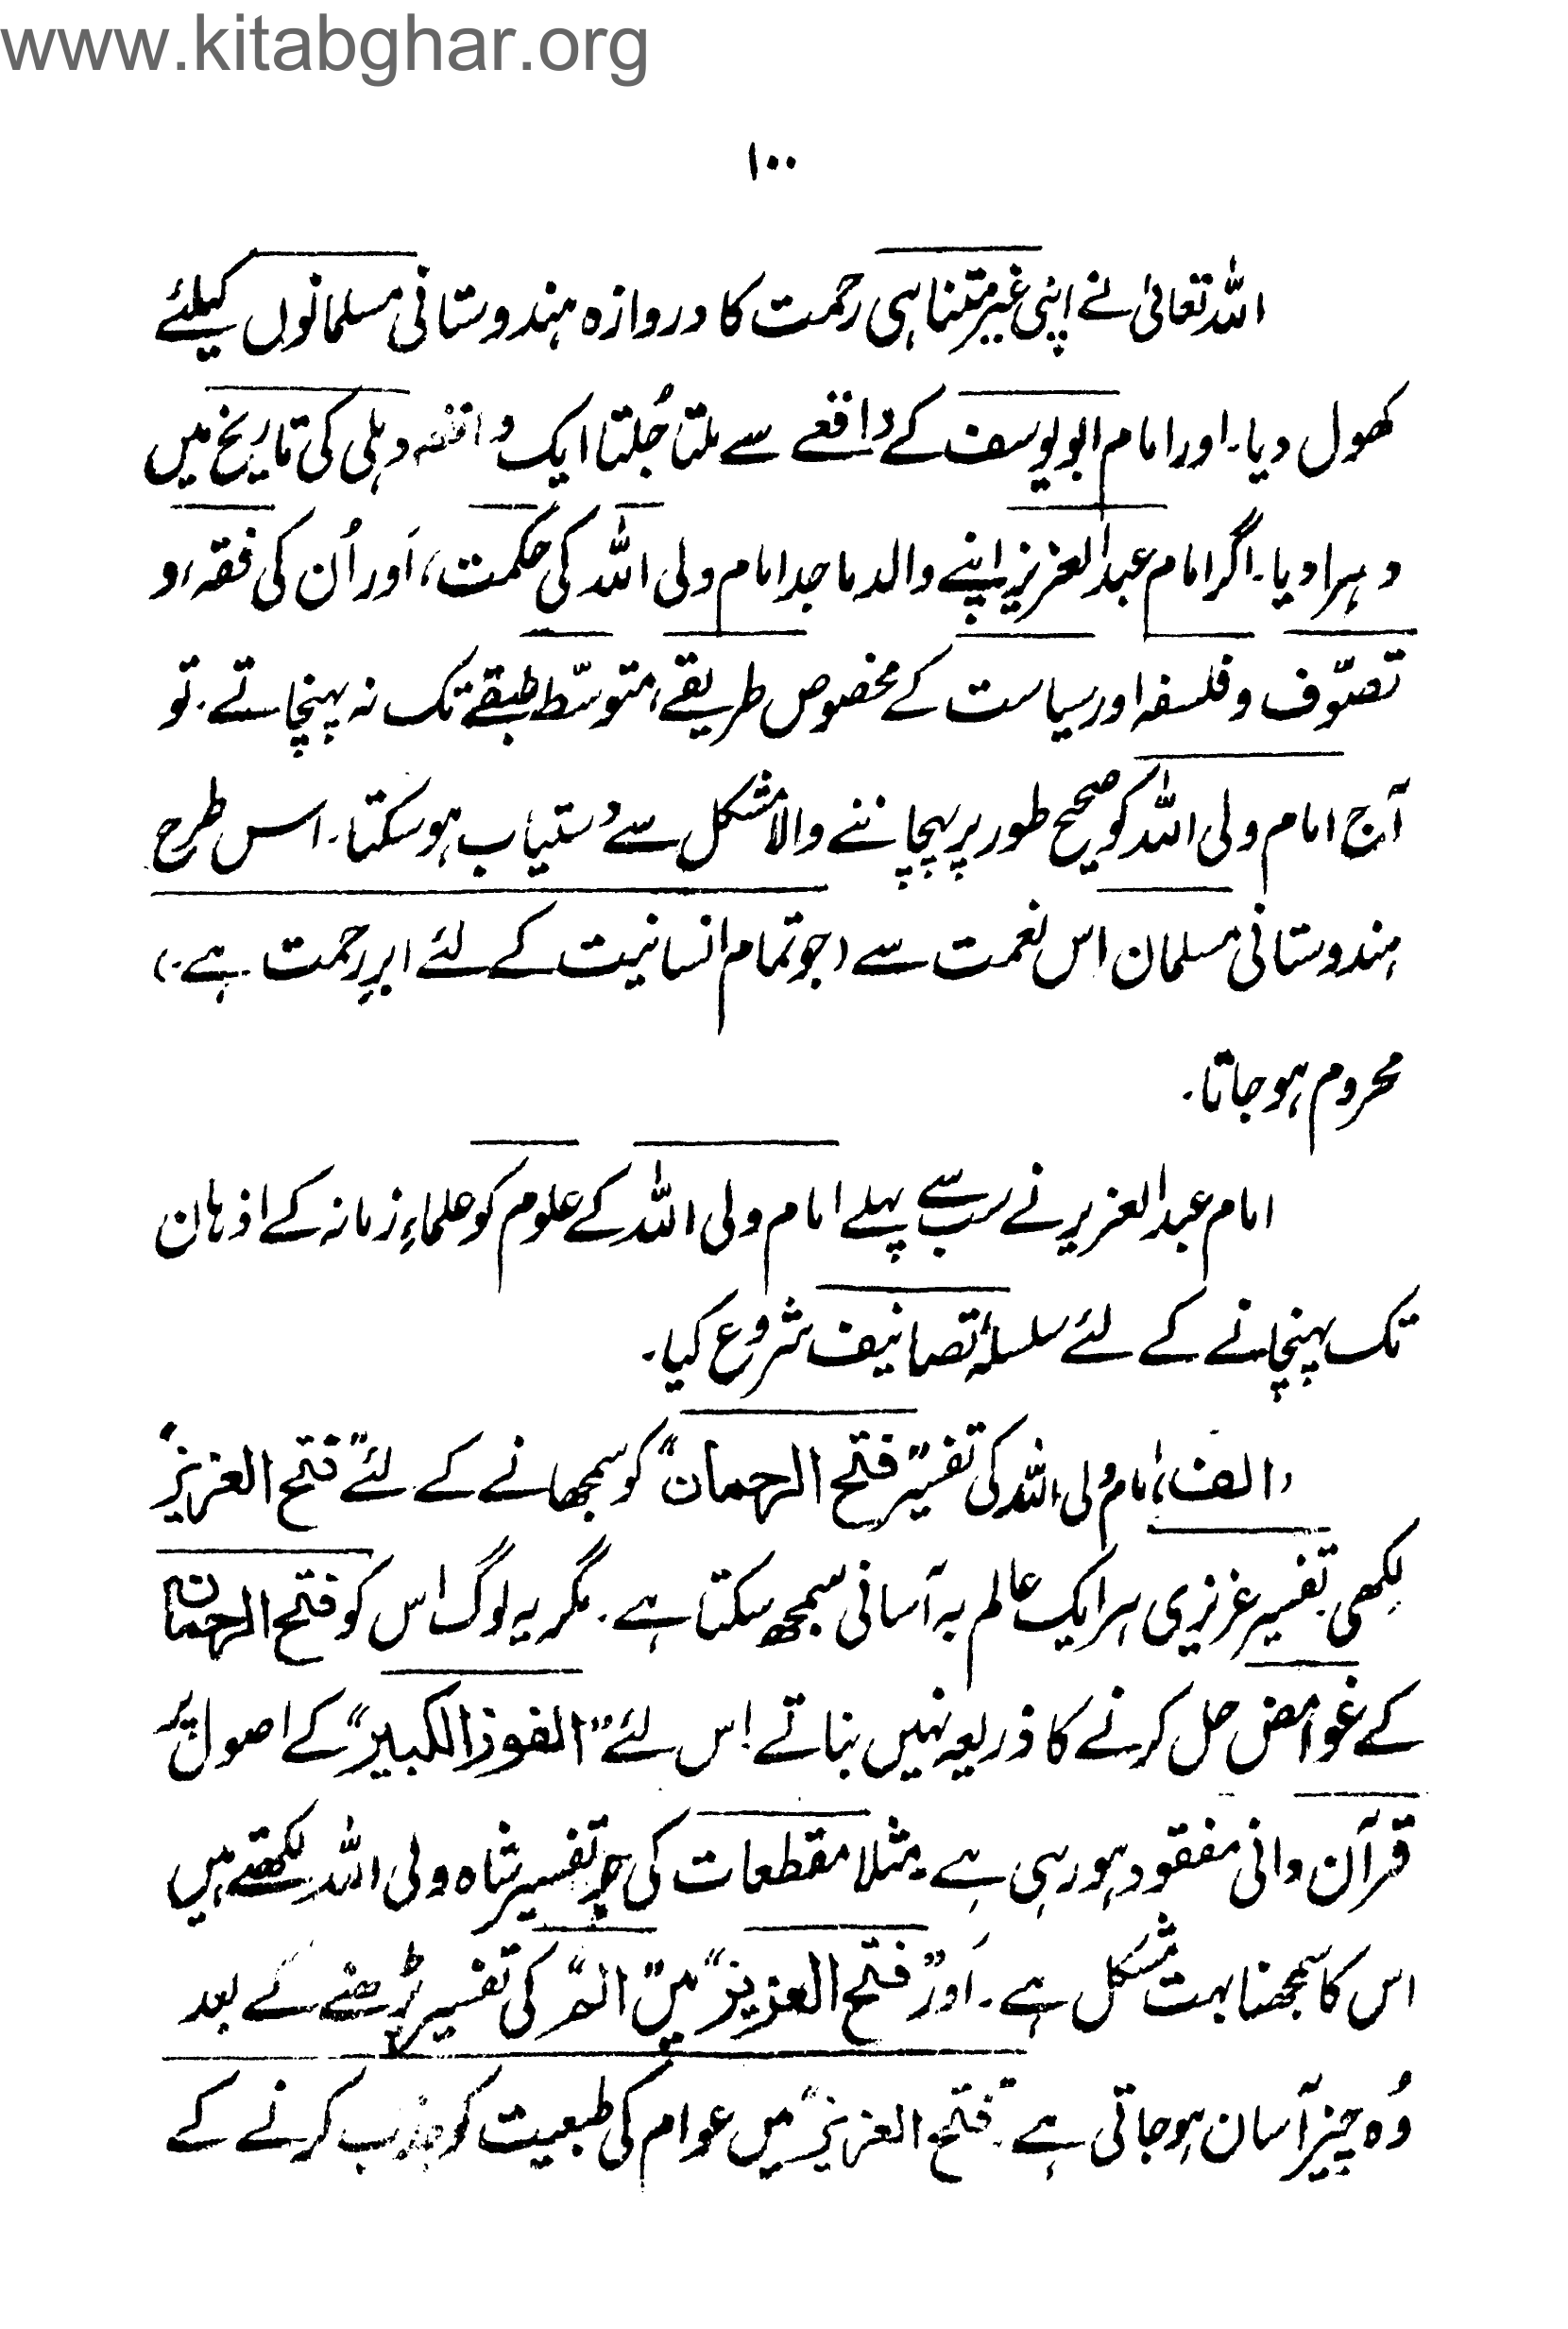 www.kitabghar.org
۱۰۰
اللہ تعالیٰ نے اپنی غیر متناہی رحمت کا دروازہ ہندوستانی مسلمانوں کیلئے
کھول دیا۔ اور امام ابو یوسف کے واقعے سے ملتا جُلتا ایک واقعہ دہلی کی تاریخ میں
دہرا دیا۔ اگر امام عبدالعزیز اپنے والد ماجد امام ولی اللہ کی حکمت، اَور اُن کی فقہ، و
تصوّف و فلسفہ اور سیاست کے مخصوص طریقے، متوسّط طبقے تک نہ پہنچاتے۔ تو
آج امام ولی اللہ کو صحیح طور پر پہچاننے والا مشکل سے دستیاب ہو سکتا۔ اس طرح
ہندوستانی مسلمان اس نعمت سے (جو تمام انسانیت کے لئے ابرِ رحمت ہے۔)
محروم ہو جاتا۔
امام عبدالعزیز نے سب سے پہلے امام ولی اللہ کے علوم کو علماءِ زمانہ کے اذہان
تک پہنچانے کے لئے سلسلۂ تصانیف شروع کیا۔
(الف) امام ولی اللہ کی تفسیر "فتح الرحمان" کو سمجھانے کے لئے "فتح العزیز"
لکھی۔ تفسیر عزیزی ہر ایک عالم بہ آسانی سمجھ سکتا ہے۔ مگر یہ لوگ اس کو فتح الرحمان
کے غوامض حل کرنے کا ذریعہ نہیں بناتے اِس لئے "الفوز الکبیر" کے اصول پر
قرآن دانی مفقود ہو رہی ہے۔ مثلا مقطعات کی جو تفسیر شاہ ولی اللہ لکھتے ہیں
اس کا سمجھنا بہت مشکل ہے۔ اَور "فتح العزیز" میں "الم" کی تفسیر پڑھنے کے بعد
وُہ چیز آسان ہو جاتی ہے۔ "فتح العزیز" میں عوام کی طبعیت کو جذب کرنے کے